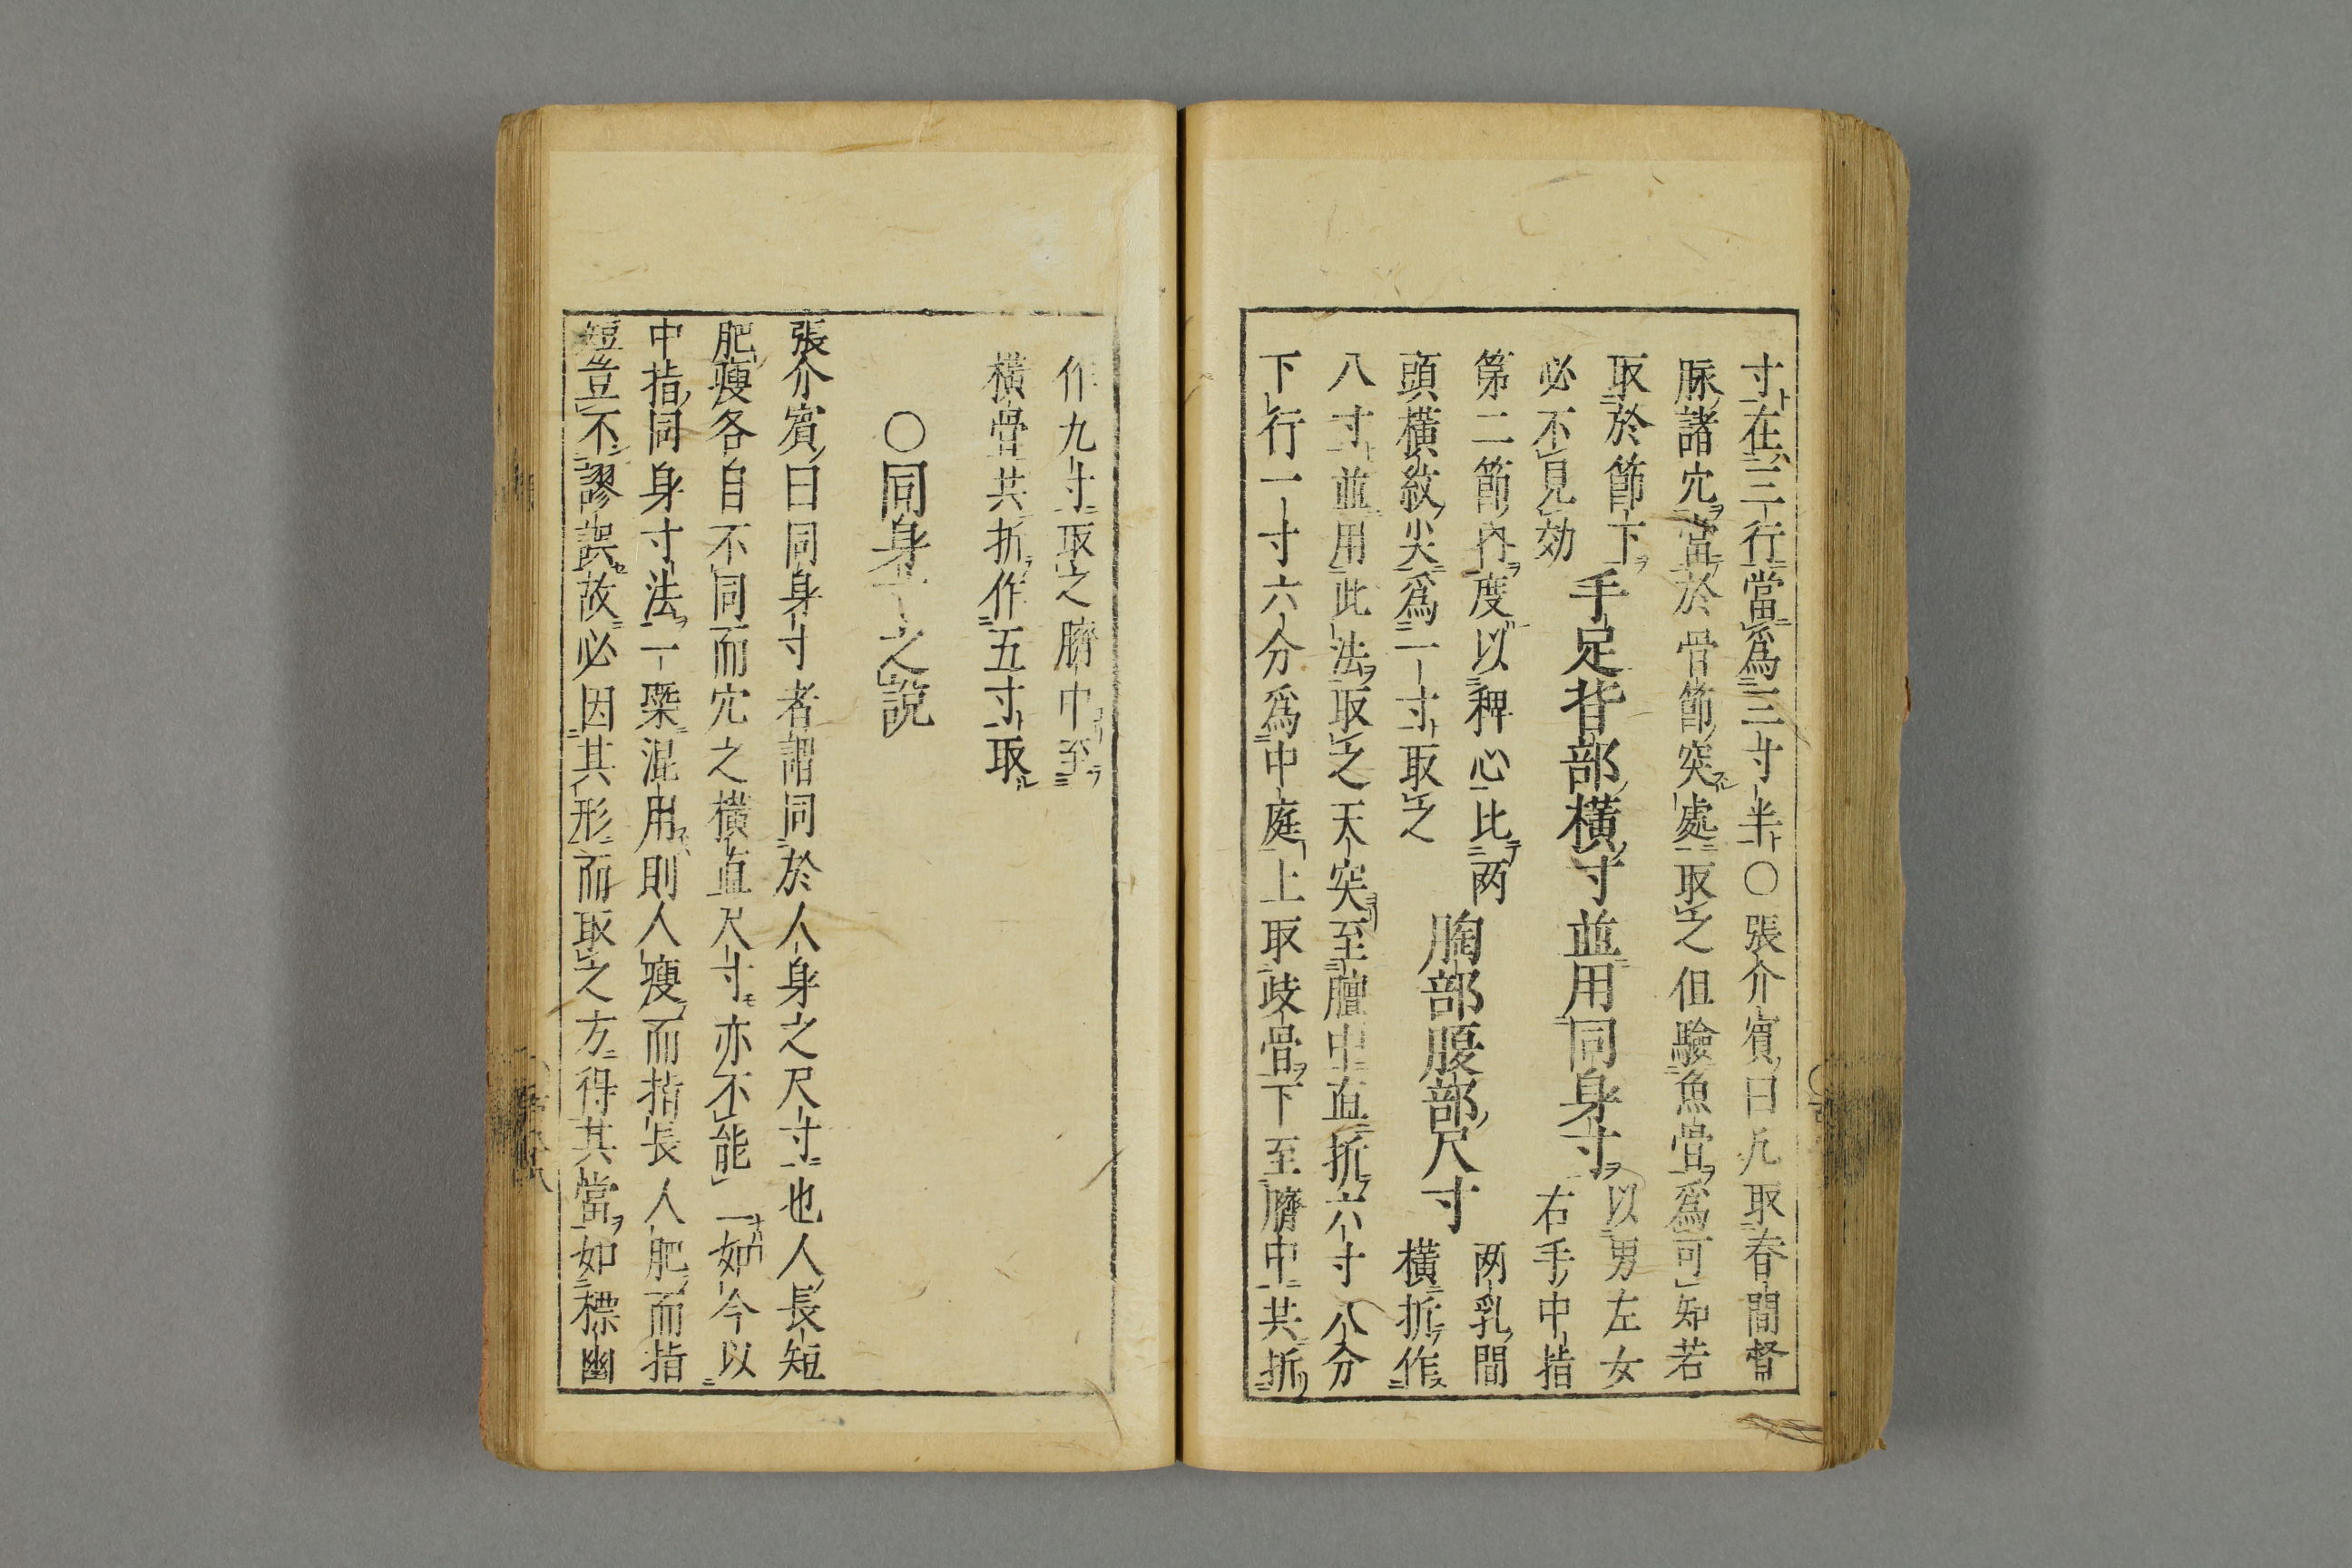 寸在三行當爲三寸半○張介賓曰凡取脊間督
脉諸穴當於骨節突處取之但驗魚骨爲可知若
取於節下
必不見効
手足背部橫寸並用同身寸
以男左女
右手中指
第二節內度以稗心比两
頭橫紋尖爲一寸取之
胸部腹部尺寸
两乳間
橫折作
八寸並用此法取之天突至膻中直折六寸八分
下行一寸六分爲中庭上取歧骨下至臍中共折
作九寸取之臍中至
橫骨共折作五寸取
○同身寸之說
張介賓曰同身寸者謂同於人身之尺寸也人長短
肥瘦各自不同而穴之橫直尺寸亦不能一如今以
中指同身寸法一槩混用則人瘦而指長人肥而指
短豈不謬誤故必因其形而取之方得其當如標幽